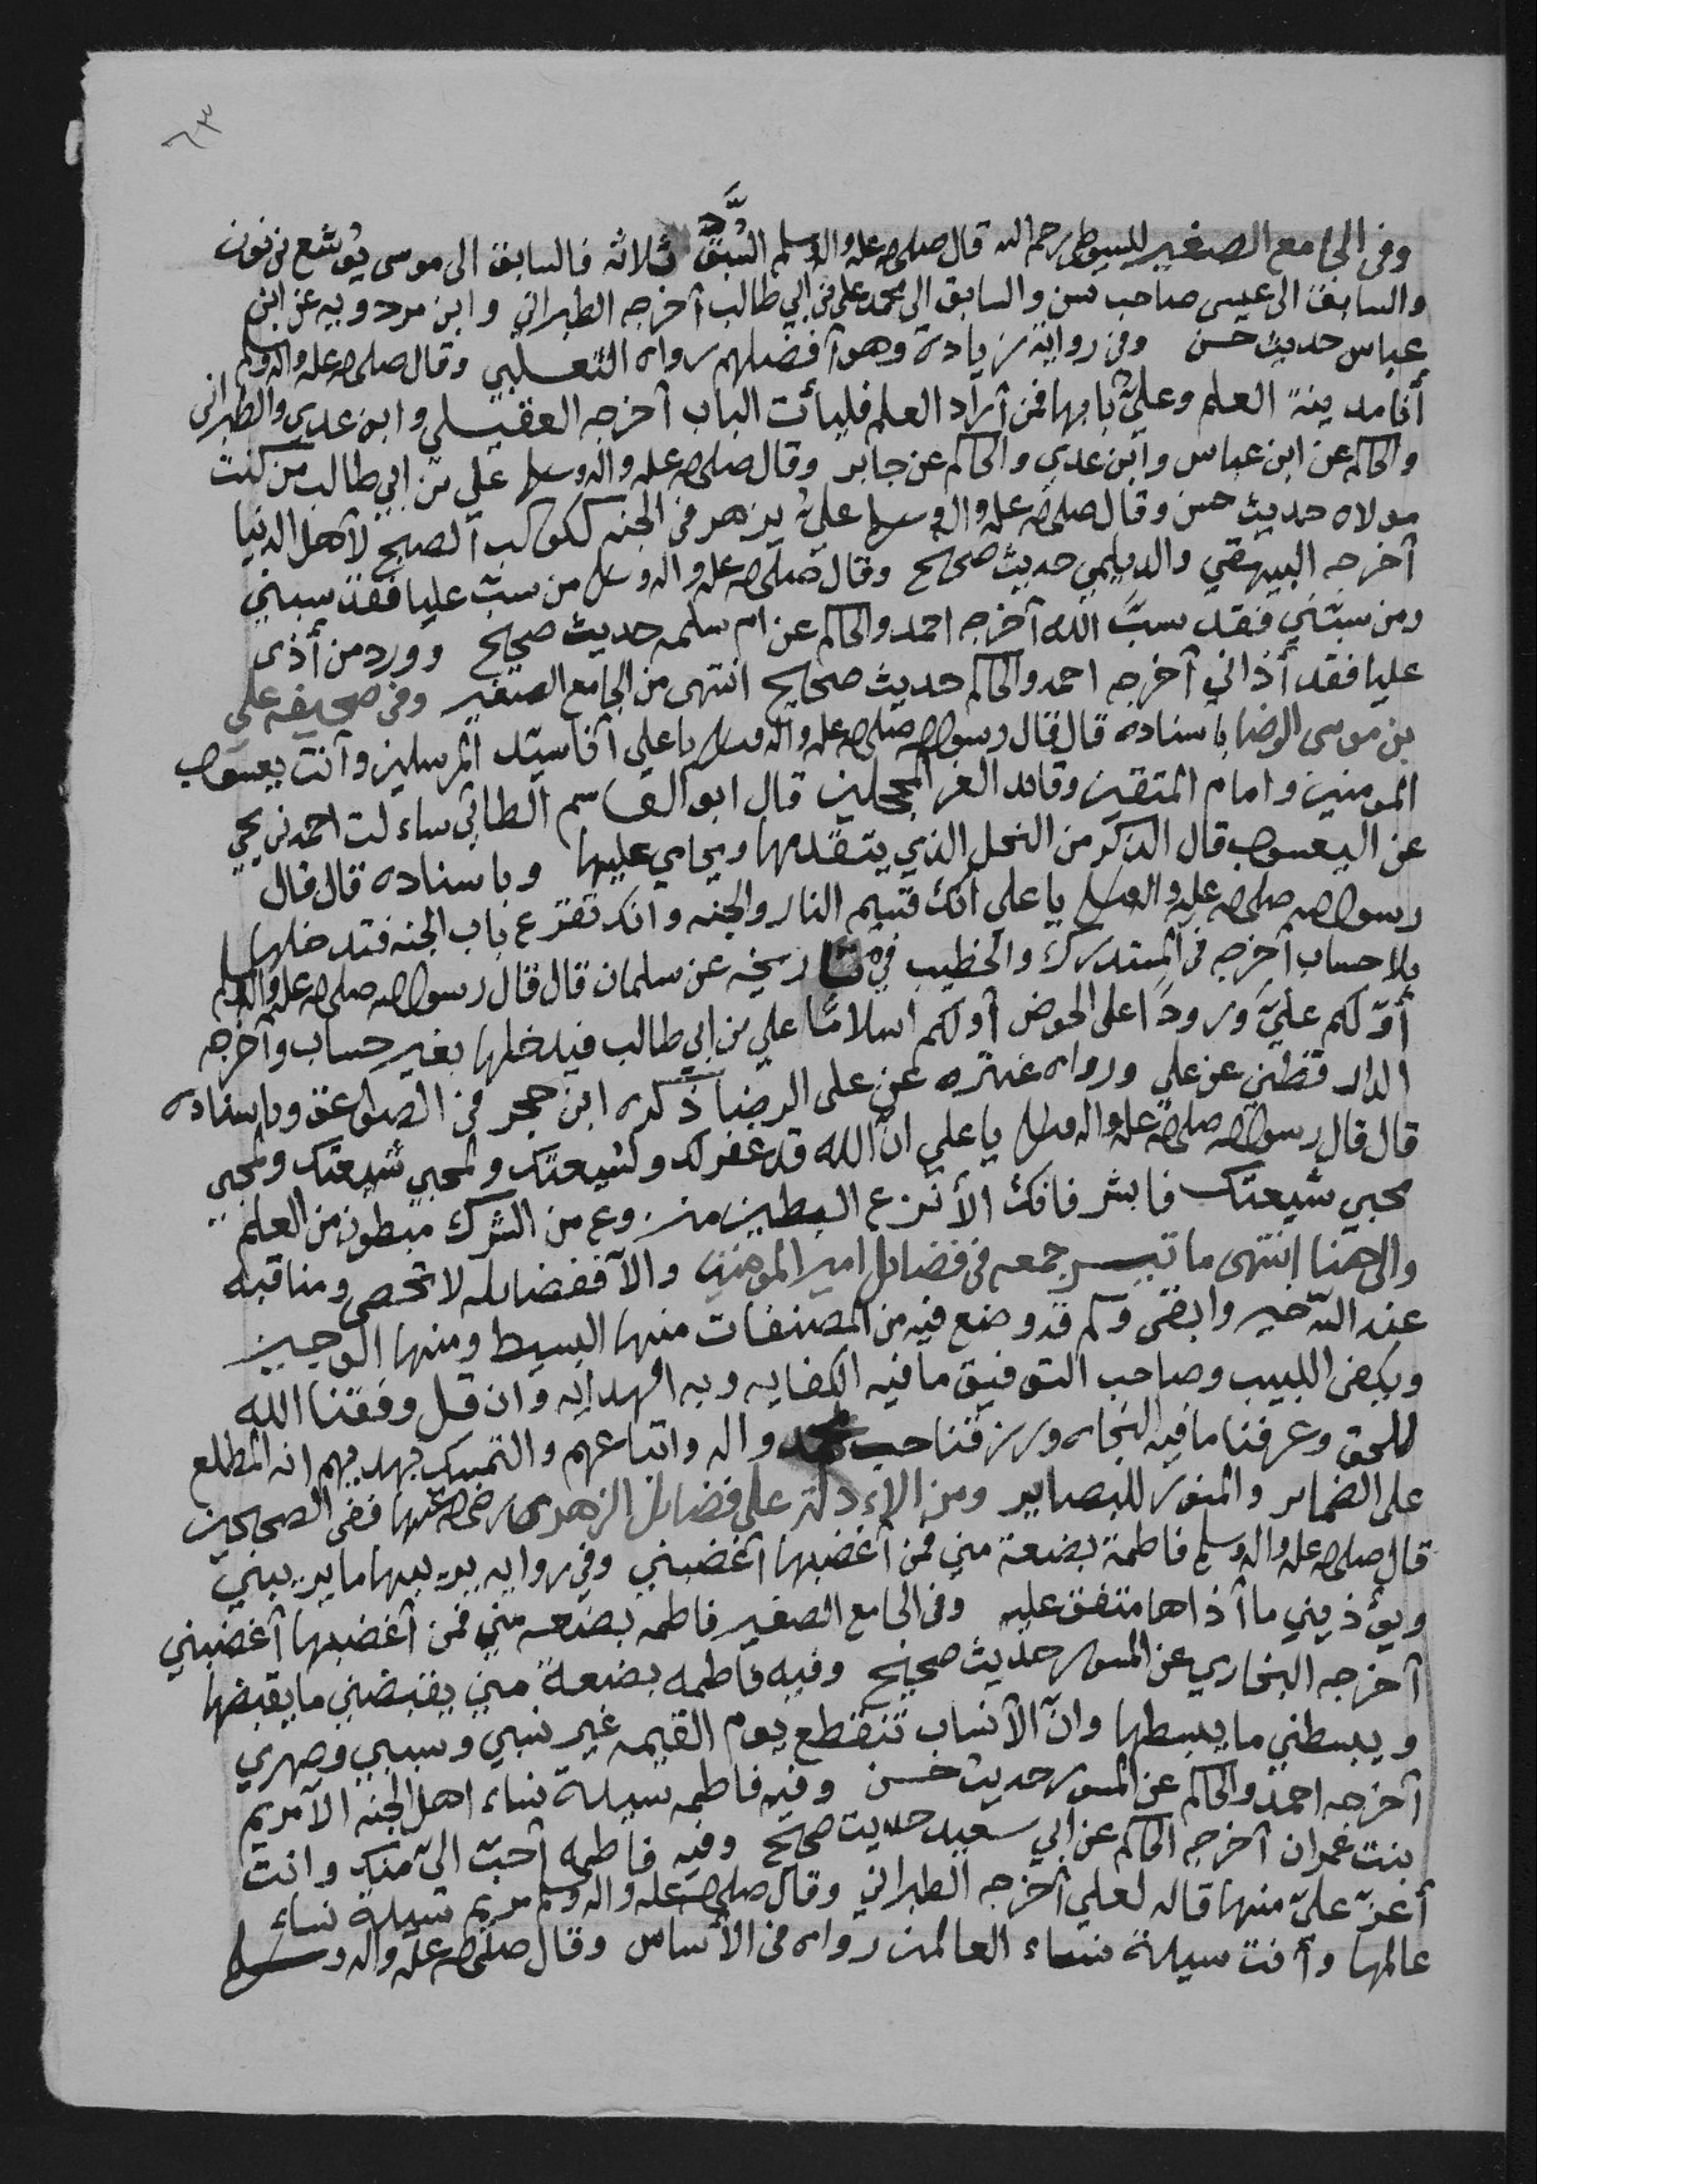 ٦٣
وفى الجامع الصغير للسيوطي رحمه الله قال صلى الله عليه واله وسلم السُّبَّق ثلاثه فالسابق الى موسى يوشع بن نون
والسابق الى عيسى صاحب يسن والسابق الى محمد علي بن ابي طالب أخرجه الطبراني وابن مردويه عن ابن
عباس حديث حسن وفي رواية زيادة وهو أفضلهم رواه الثعلبي وقال صلى الله عليه واله وسلم
أنا مدينة العلم وعليّ بابها فمن أراد العلم فليأت الباب أخرجه العقيلي وابن عدي والطبراني
والحاكم عن ابن عباس وابن عدي والحاكم عن جابر وقال صلى الله عليه واله وسلم علي بن ابي طالب من كنت
مولاه حديث حسن وقال صلى الله عليه واله وسلم عليٌ يزهر في الجنه ككوكب الصبح لأهل الدنيا
أخرجه البيهقي والديلمي حديث صحيح وقال صلى الله عليه واله وسلم من سبّ عليا فقد سبني
ومن سبّني فقد سبَّ الله أخرجه احمد والحاكم عن ام سلمه حديث صحيح وورد من أذى
عليا فقد أذاني أخرجه احمد والحاكم حديث صحيح انتهى من الجامع الصغير وفى صحيفه علي
بن موسى الرضا باسناده قال قال رسول الله صلى الله عليه واله وسلم يا علي أنا سيّد المرسلين وأنت يعسوب
المومنين وامام المتقين وقائد الغر المحجلين قال ابو القاسم الطائي ساءلت احمد بن يحيى
عن اليعسوب قال الذكر من النحل الذي يتقدمها ويحامي عليها وباسناده قال قال
رسول الله صلى الله عليه واله وسلم يا علي انك قسيم النار والجنه وانك تقرع باب الجنه فتدخلها
بلا حساب أخرجه في المستدرك والخطيب في تاريخه عن سلمان قال قال رسول الله صلى الله عليه واله وسلم
أوّلكم عليَّ ورودًا على الحوض أولكم اسلامًا علي بن ابي طالب فيدخلها بغير حساب وأخرجه
الدار قطني عن علي ورواه عنتره عن علي الرضا ذكره ابن حجر في الصواعق وباسناده
قال قال رسول الله صلى الله عليه واله وسلم يا علي انّ الله قد غفر لك ولشيعتك ولمحبي شيعتك ولمحبي
محبي شيعتك فابشر فانك الأنزع البطين منزوع من الشرك مبطون من العلم
والى هنا انتهى ما تيسر جمعه في فضايل امير المومنين والا ففضايله لا تحصى ومناقبه
عند الله خير وابقى وكم قد وضع فيه من المصنفات منها البسيط ومنها الوجيز
ويكفى اللبيب وصاحب التوفيق ما فيه الكفايه وبه الهدايه وان قل وفقنا الله
للحق وعرفنا ما فيه النجاه ورزقنا حب محمد واله واتباعهم والتمسك بهديهم انه المطلع
على الضماير والمنور للبصاير ومن الادلة على فضايل الزهرى رضي الله عنها ففي الصحيحين
قال صلى الله عليه واله وسلم فاطمة بضعة مني فمن أغضبها أغضبني وفي روايه يريبها ما يريبني
ويؤذيني ما أذاها متفق عليه وفى الجامع الصغير فاطمه بضعه مني فمن أغضبها أغضبني
أخرجه البخاري عن المسور حديث صحيح وفيه فاطمه بضعة مني يقبضني ما يقبضها
ويبسطني ما يبسطها وانّ الأنساب تنقطع يوم القيمه غير نسبي وسببي وصهري
أخرجه احمد والحاكم عن المسور حديث حسن وفيه فاطمه سيدة نساء اهل الجنه الا مريم
بنت عمران أخرجه الحاكم عن ابي سعيد حديث صحيح وفيه فاطمه أحبّ اليّ منك وانت
أعزّ عليّ منها قاله لعلي أخرجه الطبراني وقال صلى الله عليه واله وسلم مريم سيدة نساء
عالمها وأنت سيدة نساء العالمين رواه في الأساس وقال صلى الله عليه واله وسلم